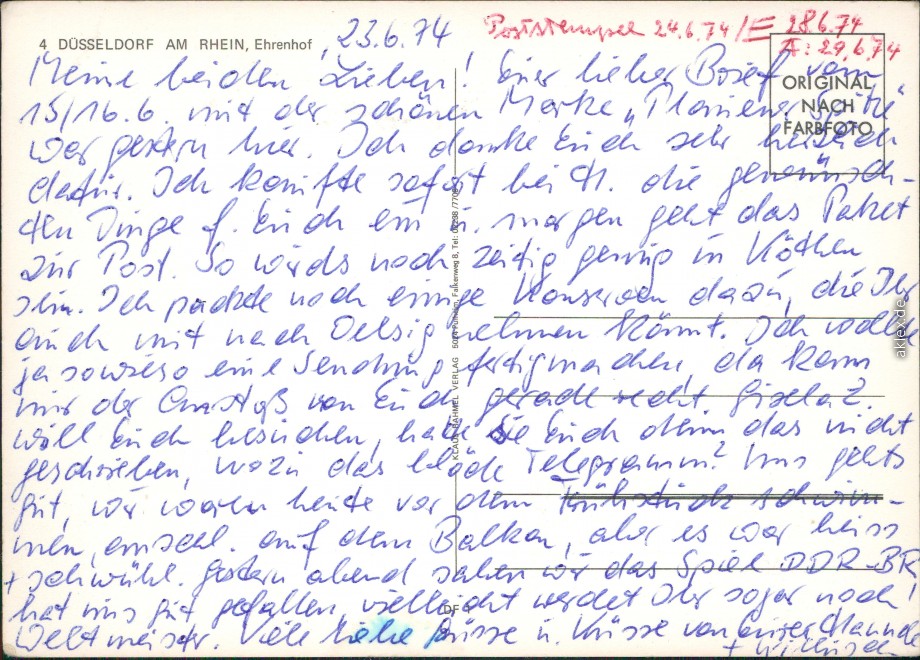 4 DÜSSELDORF AM RHEIN, Ehrenhof
23.6.74
Poststempel 24.6.74/E 28.6.74
A: 29.6.74
ORIGINAL
NACH
FARBFOTO
Meine beiden Lieben! Euer lieber Brief vom
15/16.6. mit der schönen Marke „Plauener Spitze"
war gestern hier. Ich danke Euch sehr herzlich
dafür. Ich kaufte sofort bei H. die gewünsch-
ten Dinge f. Euch ein u. morgen geht das Paket
zur Post. So wirds noch zeitig genug in Köthen
sein. Ich packte noch einige Konserven dazu, die Ihr
auch mit nach Oelsig nehmen könnt. Ich wollte
ja sowieso eine Sendung fertigmachen, da kam
mir der Anstoß von Euch gerade recht. Gisela Z.
will Euch besuchen, hat sie Euch denn das nicht
geschrieben, wozu das blöde Telegramm? Uns gehts
gut, wir waren heute vor dem Frühstück schwim-
men, anschl. auf dem Balkon, aber es war heiss
+ schwühl. Gestern abend sahen wir das Spiel DDR-BR
hat uns gut gefallen, vielleicht werdet Ihr sogar noch
Weltmeister. Viele liebe Grüsse u. Küsse von Eurer Hanna
+ Willusch
KLAUS RAHMEL VERLAG
Falkenweg 8, Tel:
DF
akpool.de